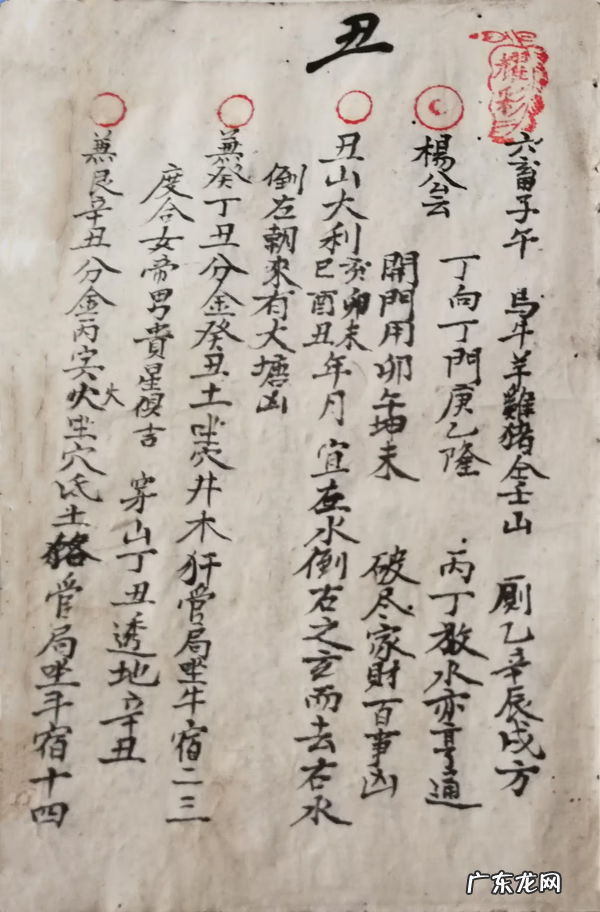 丑
耀彩
六畜子午 馬牛羊雞猪全壬山 厠乙辛辰戌方
丁向丁門庚乙隆 丙丁放水亦亨通
楊公云
開門用卯午坤未 破尽家財百事凶
丑山大利亥卯未巳酉丑年月 宜左水倒右之玄而去右水
倒左朝來有大塘凶
兼癸丁丑分金癸丑土坐穴井木犴管局坐牛宿二三
度合女帝男貴星俱吉 穿山丁丑透地辛丑
兼艮辛丑分金丙寅火坐穴氐土狢管局坐斗宿十四
火
广东龙网